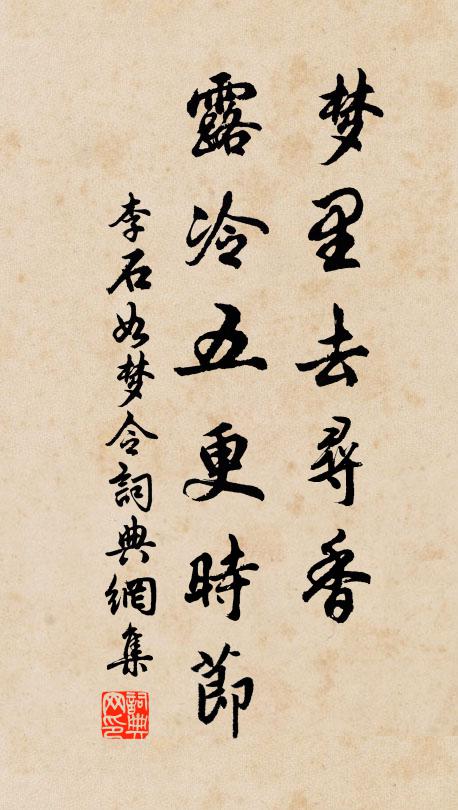 梦里去尋香
露冷五更時節
李石如梦令詞典網集
詞典网印